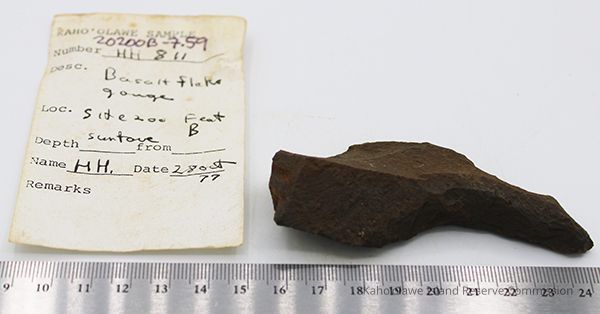 KAHO'OLAWE SAMPLE
20200B-7.59
Number HH 811
Desc. Basalt flake
gouge
Loc. Site 200 Feat
B
surface
Depth from
Name HH. Date 28 Oct
77
Remarks
9 10 11 12 13 14 15 16 17 18 19 20 21 22 23 24
Kahoolawe Island Reserve Commission